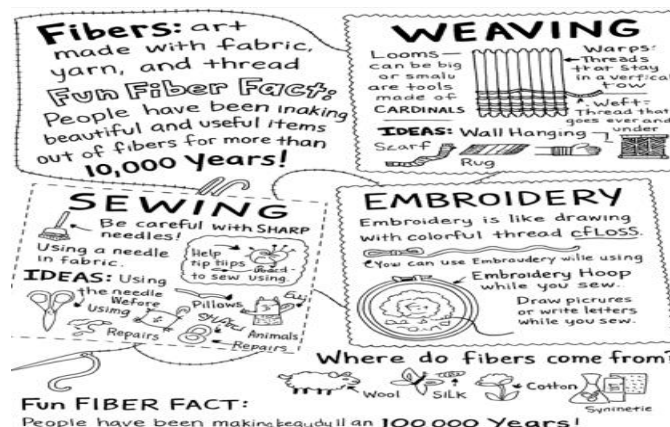 Fibers: art
made with fabric,
yarn, and thread
Fun Fiber Fact:
People have been making
beautiful and useful items
out of fibers for more than
10,000 years!
WEAVING
Looms
can be big
or smalu
are tools
made of
CARDINALS
Warps:
Threads
that stay
in a vertical
row
Weft:
Thread that
goes ever and
under
IDEAS: Wall Hanging
Scarf
Rug
SEWING
Be careful with SHARP
needles!
Using a needle
in fabric.
Help
to sew using.
IDEAS: Using
the needle
Wefore
Using
Pillows
Animals
Repairs
Repairs
EMBROIDERY
Embroidery is like drawing
with colorful thread cfLOSS.
You can use Embroudery wile using
Embroidery Hoop
while you sew.
Draw picrures
or write letters
while you sew.
Where do fibers come from?
Wool
SiLK
Cotton
Fun FIBER FACT:
People have been making an 100000 Years!